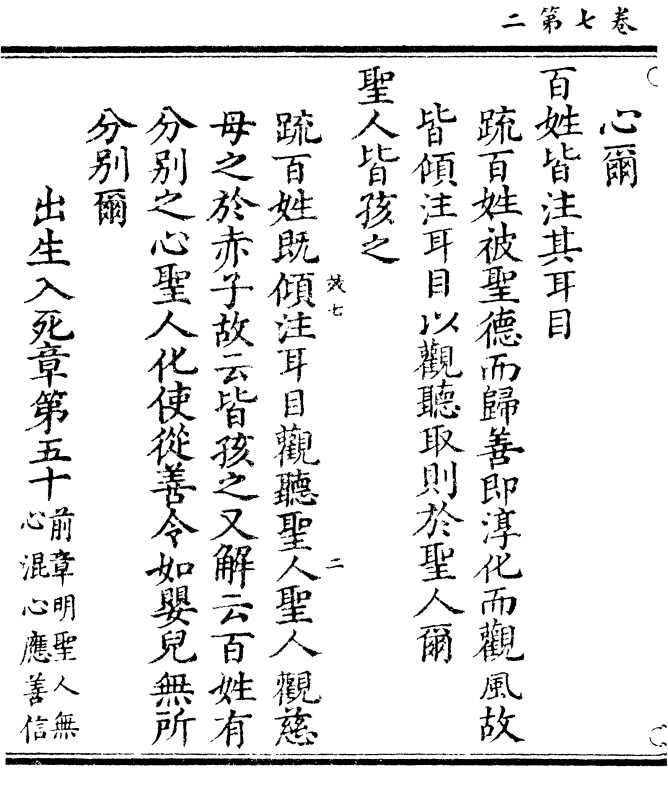 卷七第二
心爾
百姓皆注其耳目
疏百姓被聖德而歸善即淳化而觀風故
皆傾注耳目以觀聽取則於聖人爾
聖人皆孩之
疏百姓既傾注耳目觀聽聖人聖人觀慈
母之於赤子故云皆孩之又解云百姓有
分别之心聖人化使從善令如嬰兒無所
分别爾
出生入死章第五十
前章明聖人無
心混心應善信
七
二